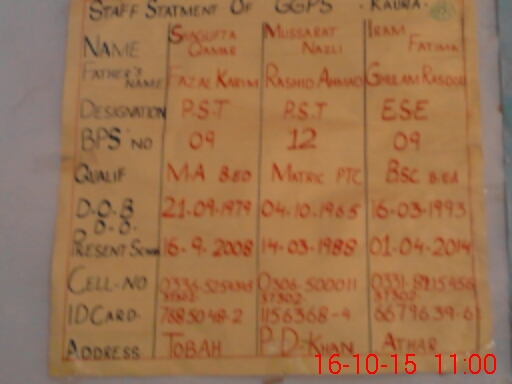 STAFF STATMENT OF GGPS - KAURA -
NAME SHAGUFTA QAMAR MUSSARAT NAZLI IRAM FATIMA
FATHER'S NAME FAZAL KARIM RASHID AHMAD GHULAM RASOOL
DESIGNATION P.S.T P.S.T ESE
BPS NO 09 12 09
QUALIF M.A B.ED MATRIC PTC BSC B.ED
D.O.B 21-09-1979 04-10-1965 16-03-1993
D.O. PRESENT 16-9-2008 14-03-1988 01-04-2014
CELL-NO 0306-500011
ID CARD 37302- 7885048-2 37302- 1156368-4 37302- 6679639-6
ADDRESS TOBAH P-D-KHAN ATHAR
16-10-15 11:00